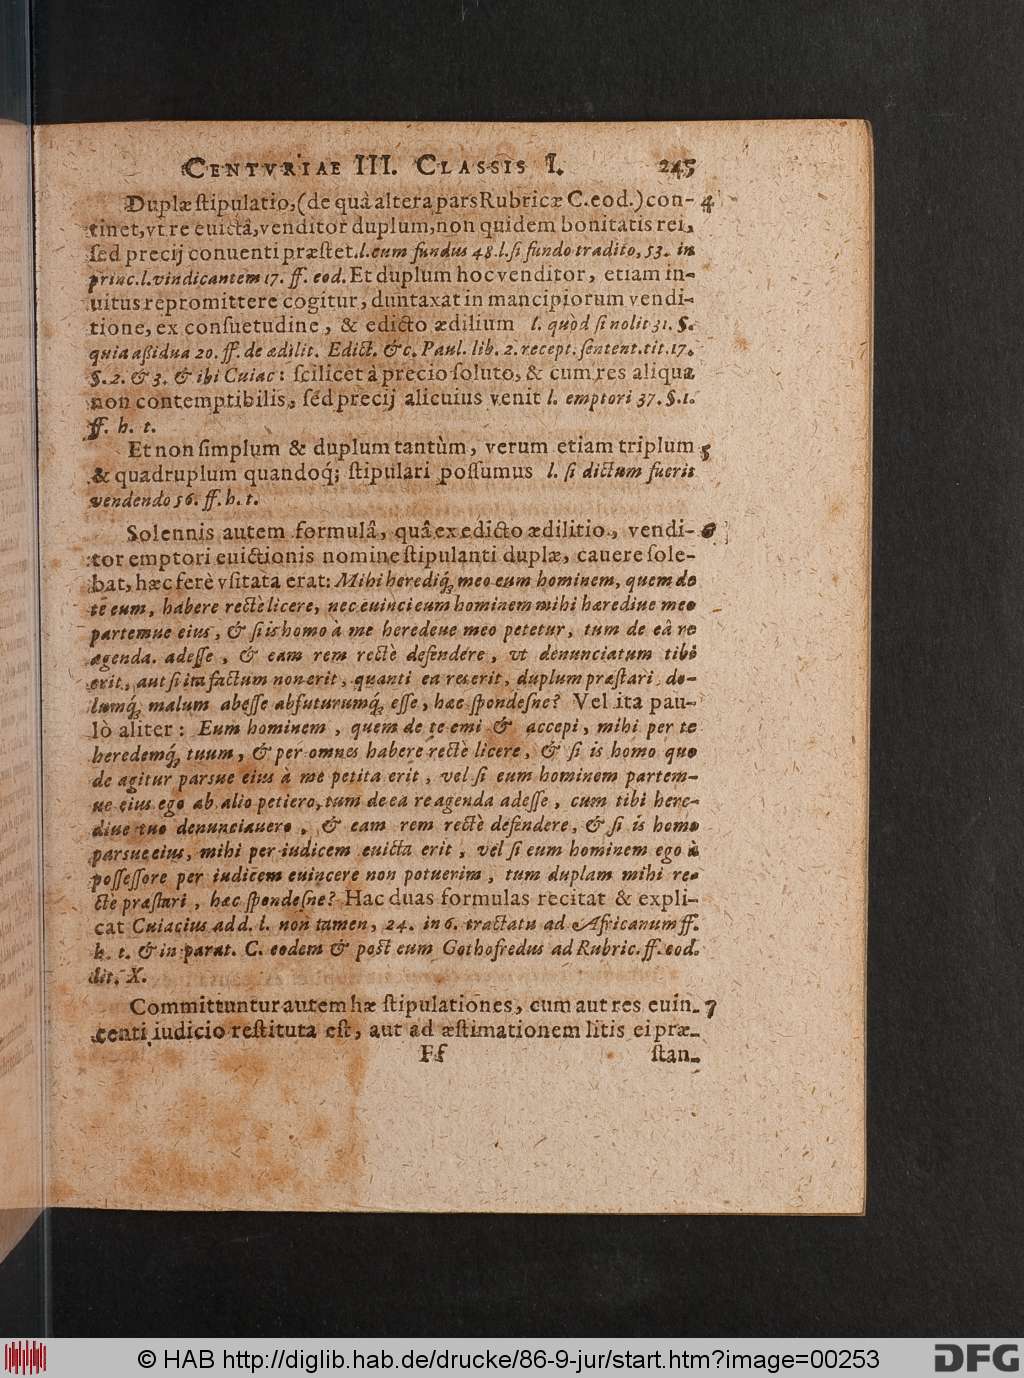 CENTVRIAE III. CLASSIS I. 245
Duplæ ſtipulatio, (de quâ altera pars Rubricæ C. eod.) con- 4
tinet, vt re euictâ, venditor duplum, non quidem bonitatis rei,
ſed precij conuenti præſtet. l. cum fundus 48. l. ſi fundo tradito, 53. in
princ. l. vindicantem 17. ff. eod. Et duplum hoc venditor, etiam in-
uitus repromittere cogitur, duntaxat in mancipiorum vendi-
tione, ex conſuetudine, & edicto ædilium l. quòd ſi nolit 31. §.
quia aßidua 20. ff. de ædilit. Edict. &c. Paul. lib. 2. recept. ſentent. tit. 17.
§. 2. & 3. & ibi Cuiac: ſcilicet à precio ſoluto, & cum res aliqua
non contemptibilis, ſed precij alicuius venit l. emptori 37. §. 1.
ff. h. t.
Et non ſimplum & duplum tantùm, verum etiam triplum 5
& quadruplum quandoq́; ſtipulari poſſumus l. ſi dictum fuerit
vendendo 56. ff. h. t.
Solennis autem formulâ, quâ ex edicto ædilitio, vendi- 6
tor emptori euictionis nomine ſtipulanti duplæ, cauere ſole-
bat, hæc ferè vſitata erat: Mihi herediq́; meo eum hominem, quem de
te eum, habere rectè licere, nec euinci eum hominem mihi hæredive meo
partemue eius, & ſi is homo à me heredeue meo petetur, tum de eâ re
agenda. adeſſe, & eam rem rectè defendere, vt denunciatum tibi
erit, aut ſi ita factum non erit, quanti ea res erit, duplum præſtari, do-
lumq́; malum abeſſe abfuturumq́; eſſe, hæc ſpondeſne? Vel ita pau-
lò aliter: Eum hominem, quem de te emi & accepi, mihi per te
heredemq́; tuum, & per omnes habere rectè licere, & ſi is homo quo
de agitur parsue eius à me petita erit, vel ſi eum hominem partem-
ue eius ego ab alio petiero, tum de ea re agenda adeſſe, cum tibi here-
diue tuo denunciauero, & eam rem rectè defendere, & ſi is homo
parsue eius, mihi per iudicem euicta erit, vel ſi eum hominem ego à
poſſeſſore per iudicem euincere non potuerim, tum duplam mihi re-
ctè præſtari, hæc ſpondeſne? Hac duas formulas recitat & expli-
cat Cuiacius ad d. l. non tamen, 24. in 6. tractatu ad Africanum ff.
h. t. & in parat. C. eodem & poſt eum Gothofredus ad Rubric. ff. eod.
dit. X.
Committuntur autem hæ ſtipulationes, cum aut res euin- 7
centi iudicio reſtituta eſt, aut ad æſtimationem litis ei præ-
Ff ſtan-
© HAB http://diglib.hab.de/drucke/86-9-jur/start.htm?image=00253
DFG